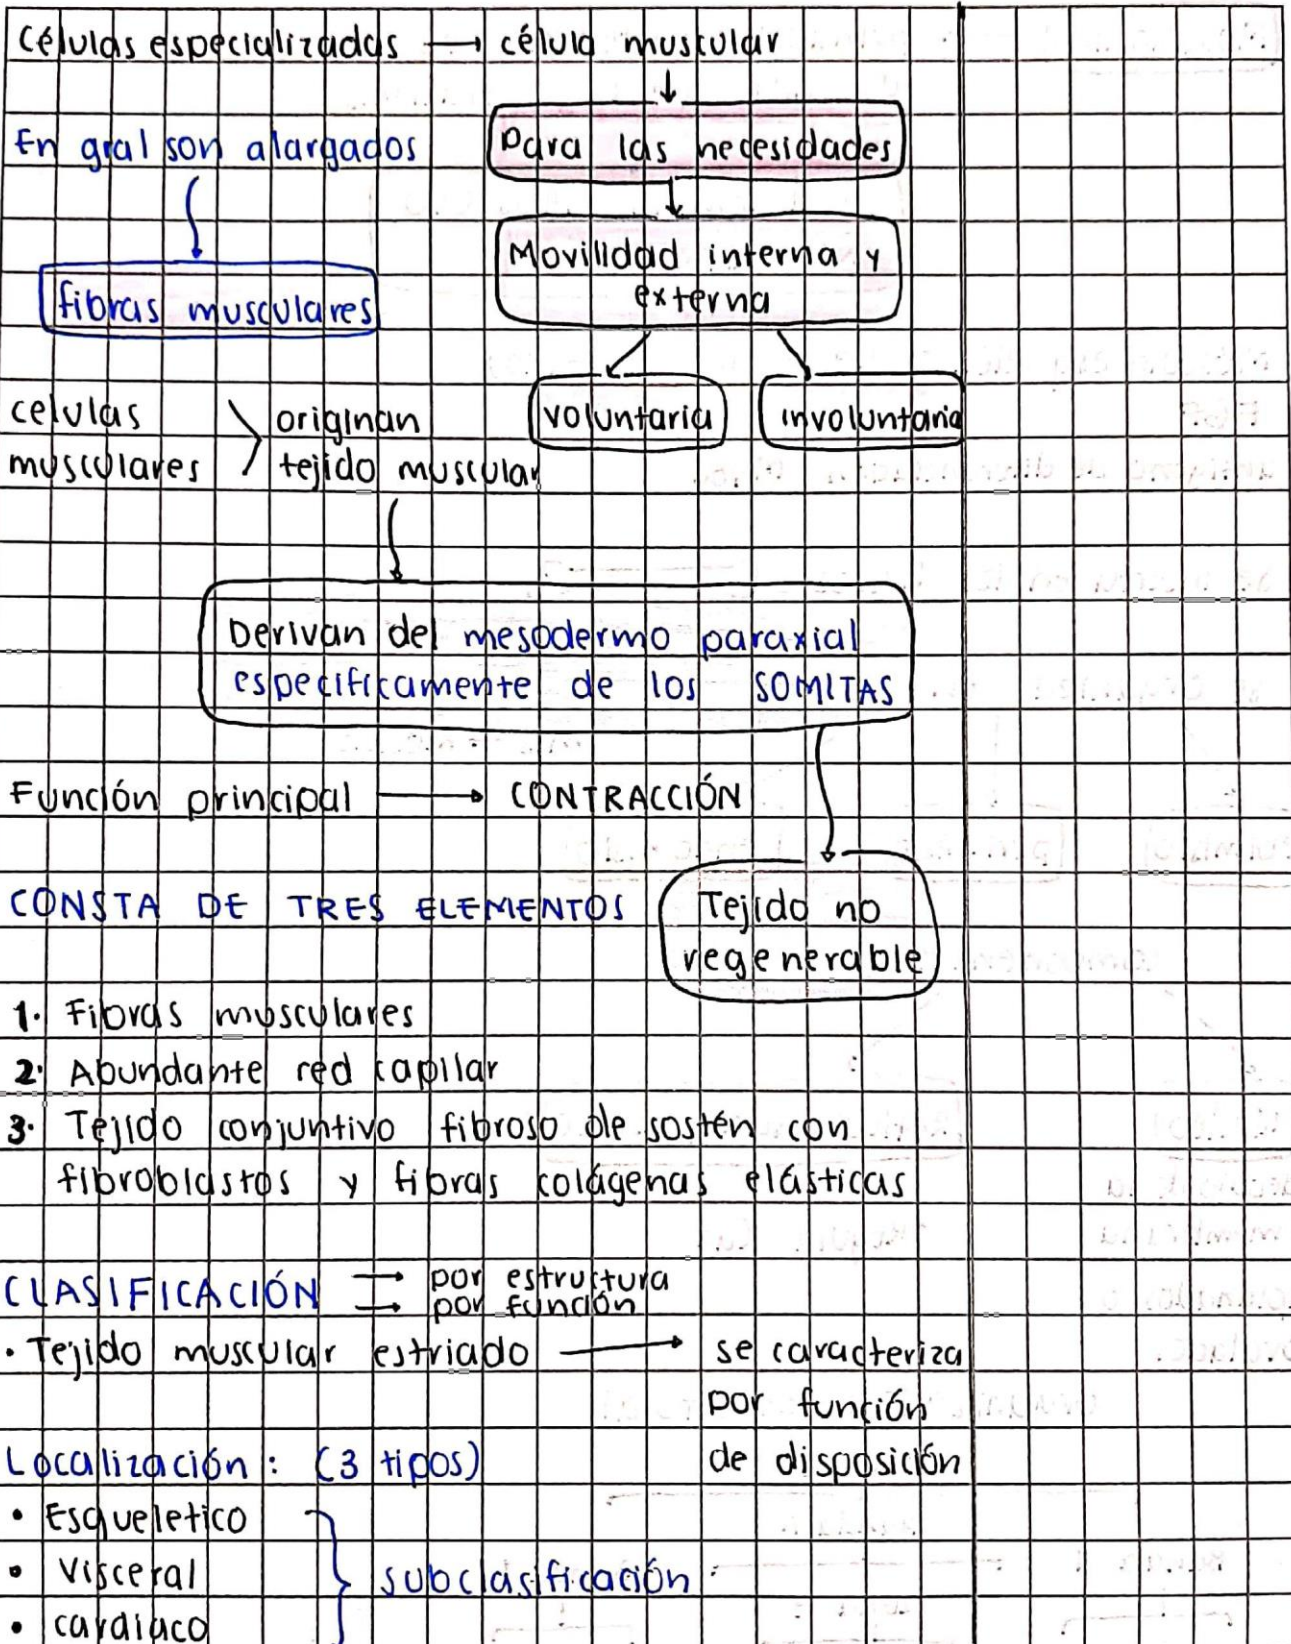 Células especializadas → célula muscular
En gral son alargados
Para las necesidades
Movilidad interna y
externa
fibras musculares
voluntaria
involuntaria
celulas
musculares
originan
tejido muscular
Derivan del mesodermo paraxial
especificamente de los SOMITAS
Función principal → CONTRACCIÓN
CONSTA DE TRES ELEMENTOS
Tejido no
regenerable
1. Fibras musculares
2. Abundante red capilar
3. Tejido conjuntivo fibroso de sostén con
fibroblastos y fibras colágenas elásticas
CLASIFICACIÓN → por estructura
→ por función
• Tejido muscular estriado → se caracteriza
por función
de disposición
Localización: (3 tipos)
• Esqueletico
• Visceral
• cardiaco
subclasificación